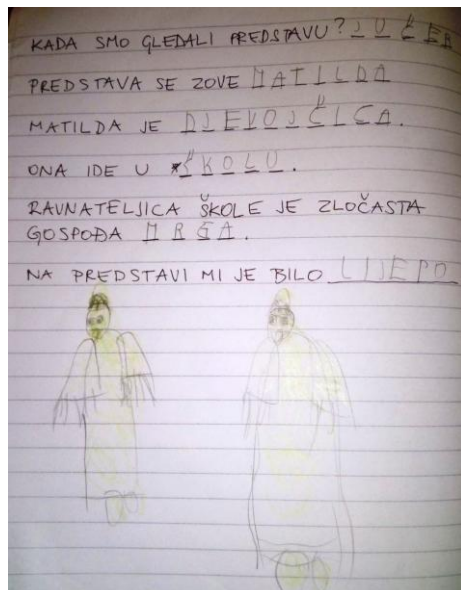 KADA SMO GLEDALI PREDSTAVU? JUČER
PREDSTAVA SE ZOVE MATILDA
MATILDA JE DJEVOJČICA.
ONA IDE U ŠKOLU.
RAVNATELJICA ŠKOLE JE ZLOČASTA
GOSPOĐA MRGA.
NA PREDSTAVI MI JE BILO LIJEPO